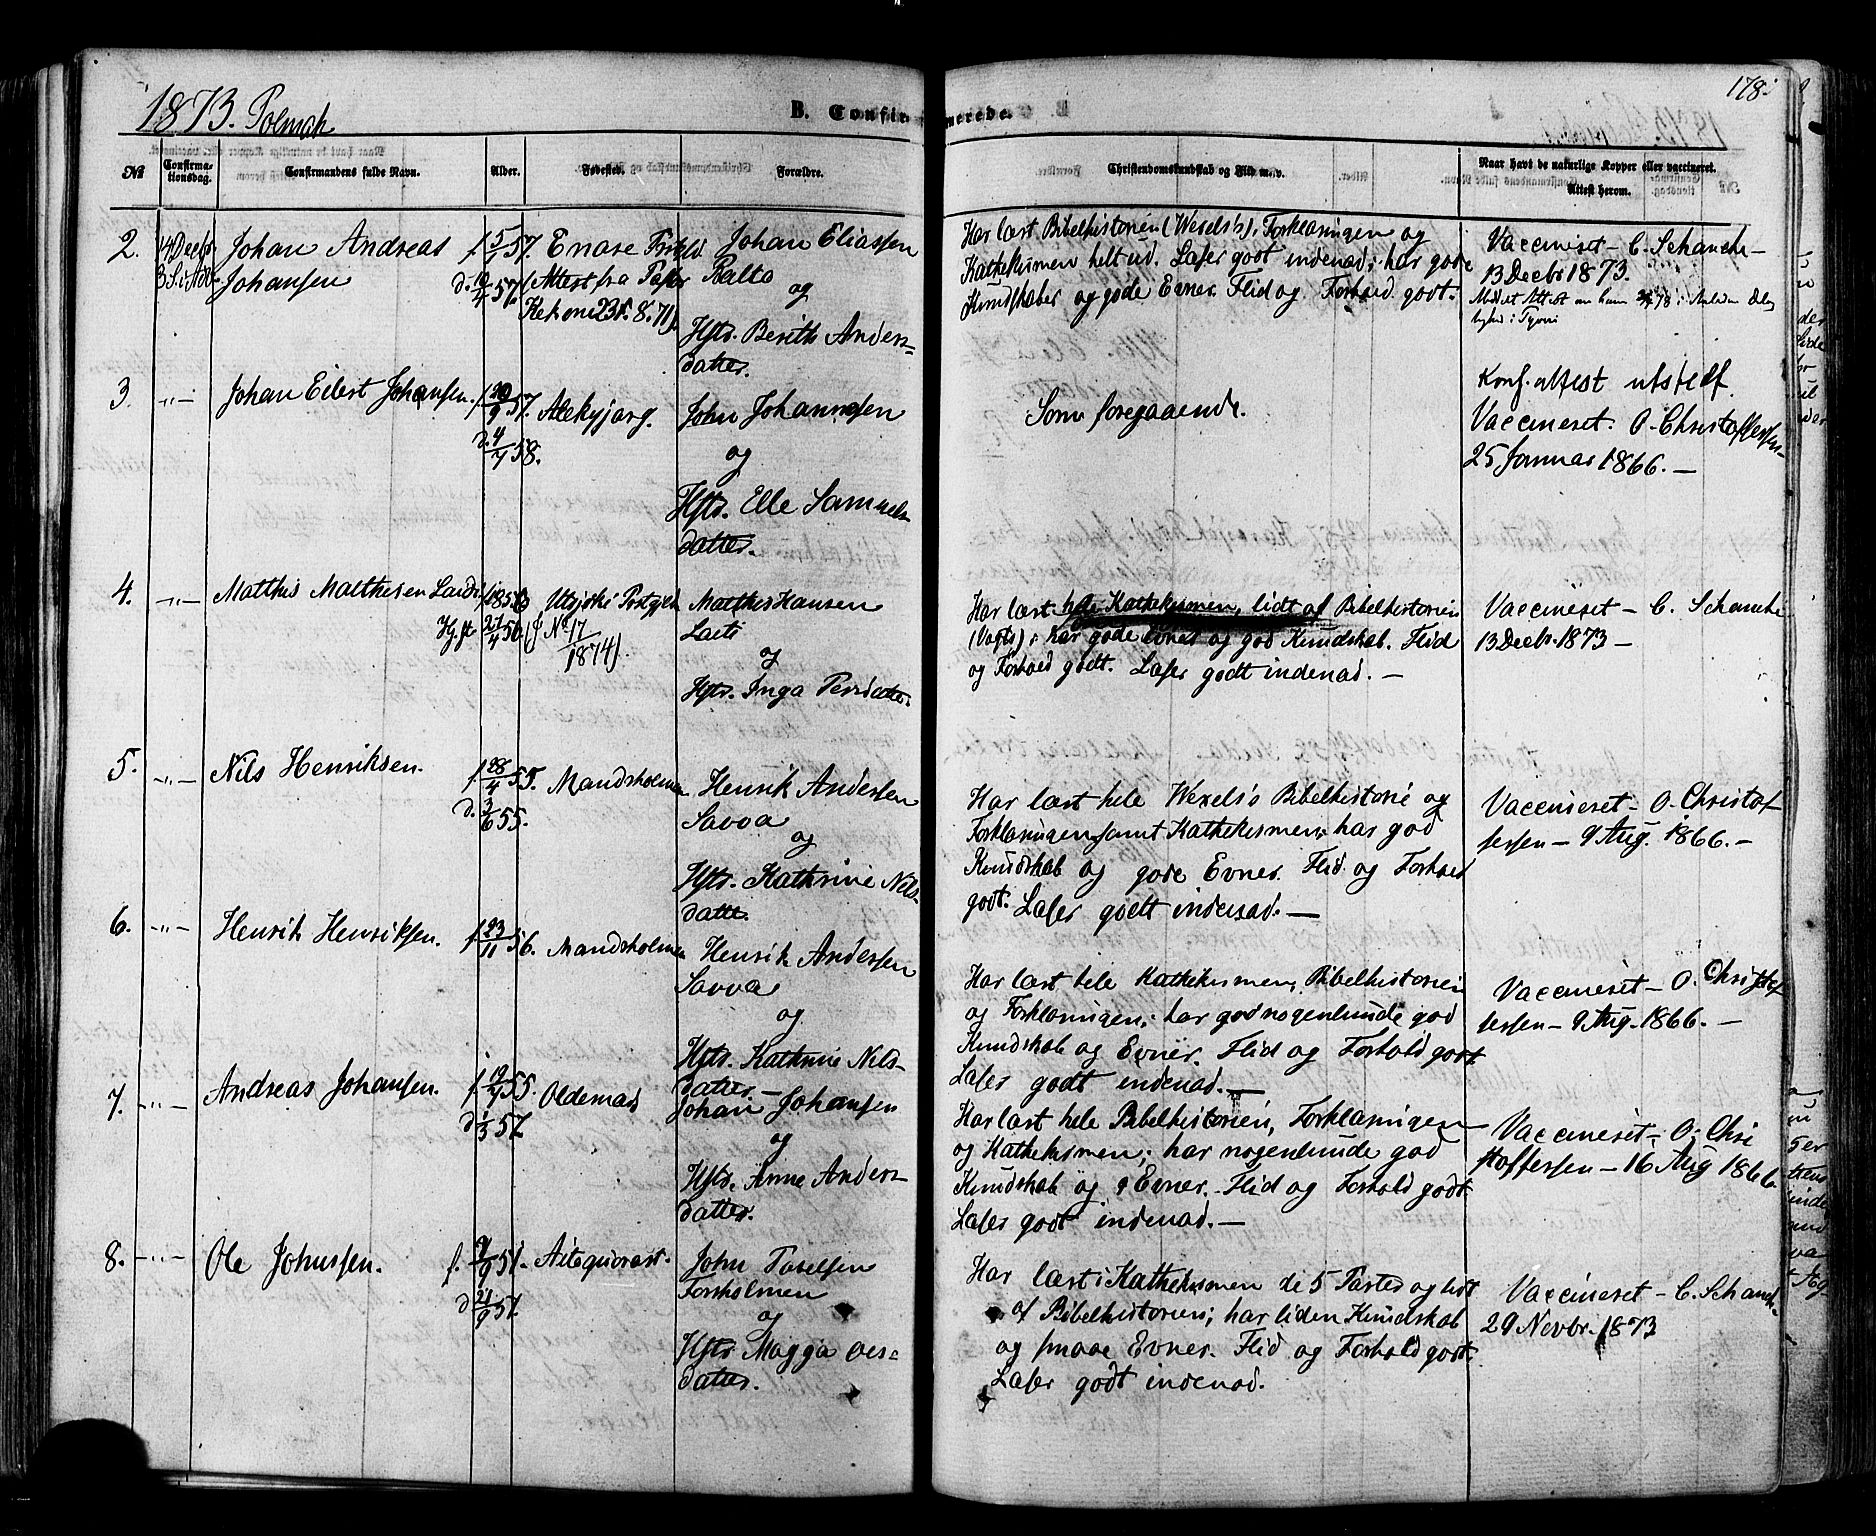 178.
1873. Polmak
B. Confirmerede.
No
Confirmationsdag.
Confirmandens fulde Navn.
Alder.
Fødested.
Forældre.
Christendomskundskab og Flid m. v.
Naar havt de naturlige Kopper eller vaccineret. Attest herom.
2. 14 Decbr 3. S. i Adv. Johan Andreas Johansen f. 5/1 57. d. 10/4 57. Enare Præstgjeld (Attest fra Pastor 23/8. 71).
Johan Eliassen
Balto
og
Hstr. Berith Anders-
datter.
Har læst Bibelhistorien (Wexels's), Forklaringen og
Kathekismen helt ud. Læser godt indenad; har gode
Kundskaber og gode Evner. Flid og Forhold godt.
Vaccineret – C. Schanche –
13 Decbr 1873.
3. -"- Johan Eilert Johansen. f. 20/9 57. d. 4/7 58. Alekjarg.
John Johannesen
og
Hstr. Elle Samuels
datter.
Som foregaaende.
Konf. attest utstedt.
Vaccineret. O. Christoffersen.
25 Januar 1866. –
4. -"- Matthis Matthisen Laiti 21/4 56. Utsjoki Præstgjeld
(J No 17/1874).
Matthis Hansen
Laiti
og
Hstr. Inga Persdatter.
Har læst hele Kathekismen, lidt af Bibelhistorien
(Vogts); har gode Evner og god Kundskab. Flid
og Forhold godt. Læser godt indenad. –
Vaccineret – C. Schanche
13 Decbr. 1873 –
5. -"- Nils Henriksen. f. 28/4 55. d. 3/6 55. Mandsholmen
Henrik Andersen
Savva
og
Hstr. Kathrine Nils-
datter.
Har læst hele Wexels's Bibelhistorie og
Forklaringen samt Kathekismen; har god
Kundskab og gode Evner. Flid og Forhold
godt. Læser godt indenad. –
Vaccineret – O. Christof
fersen – 9 Aug. 1866. –
6. -"- Henrik Henriksen. f. 23/11 56. Mandsholmen
Henrik Andersen
Savva
og
Hstr. Kathrine Nils-
datter. –
Har læst hele Kathekismen, Bibelhistorien
og Forklaringen; har god nogenlunde god
Kundskab og Evner. Flid og Forhold godt
Læser godt indenad. –
Vaccineret – O. Christof
fersen – 9 Aug. 1866. –
7. -"- Andreas Johansen. f. 19/7 55. d. 1/3 57. Oldernæs
Johan Johansen
og
Hstr. Anne Anders-
datter.
Har læst hele Bibelhistorien, Forklaringen
og Kathekismen; har nogenlunde god
Kundskab og Evner. – Flid og Forhold godt
Læser godt indenad. –
Vaccineret – O. Chri
stoffersen – 16 Aug 1866.
8. -"- Ole Johnsen. d 21/9 57.
John
Forsholmen
og
Hstr. Magga Oles-
datter.
Har læst i Kathekismen de 5 Parter og lidt
af Bibelhistorien; har liden Kundskab
og smaae Evner. Flid og Forhold godt.
Læser godt indenad.
Vaccineret – C. Schanch.
29 Novbr. 1873